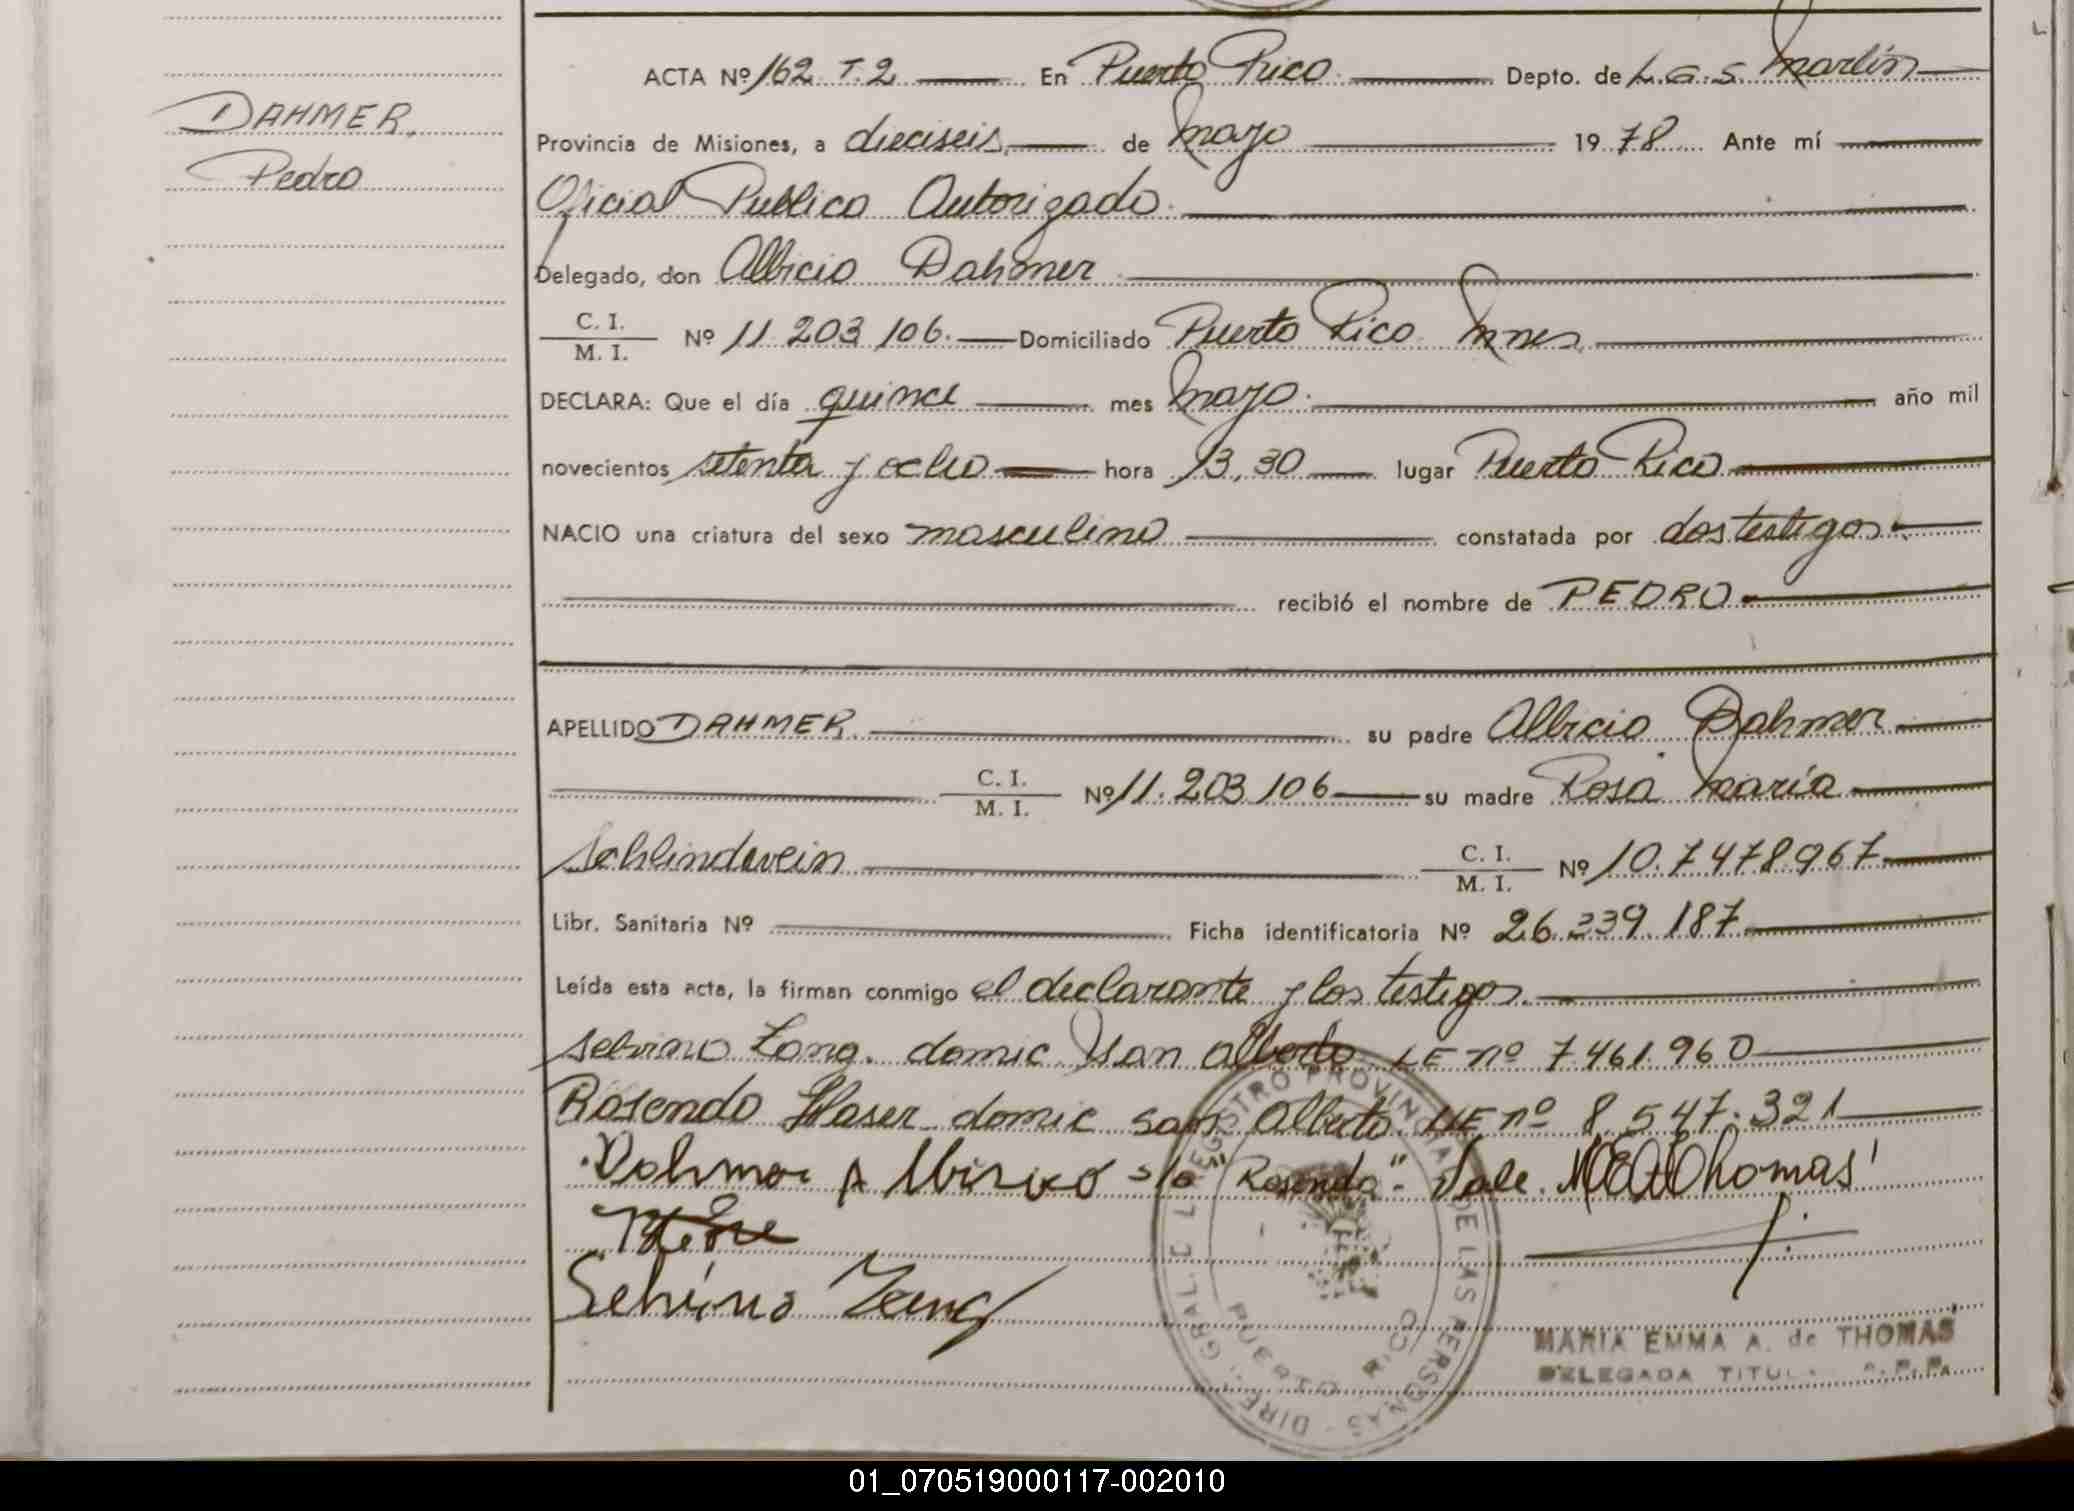 DAHMER,
Pedro
ACTA Nº 162 T.2 En Puerto Rico Depto. de L.G.S. Martín
Provincia de Misiones, a dieciseis de mayo 1978 Ante mí
Oficial Publico Autorizado
Delegado, don Albicio Dahmer
C. I.
M. I. Nº 11.203.106. Domiciliado Puerto Rico Mnes.
DECLARA: Que el día quince mes mayo. año mil
novecientos setenta y ocho hora 13,30 lugar Puerto Rico
NACIO una criatura del sexo masculino constatada por dos testigos
recibió el nombre de PEDRO
APELLIDO DAHMER. su padre Albicio Dahmer
C. I.
M. I. Nº 11.203.106 su madre Rosa María
Schlindvein C. I.
M. I. Nº 10.7478.967
Libr. Sanitaria Nº Ficha identificatoria Nº 26.239.187
Leída esta acta, la firman conmigo el declarante y los testigos.
Selvino Zang. domic San Alberto LE nº 7.461.960
Rosendo domic San Alberto LE nº 8.547.321
s/o "Rosendo". Vale. Thomas
Zang
REGISTRO PROVINCIAL DE LAS PERSONAS - DIREC. GRAL. DEL
PUERTO RICO
MARIA EMMA A. de THOMAS
DELEGADA TITULAR R.P.P.
01_070519000117-002010